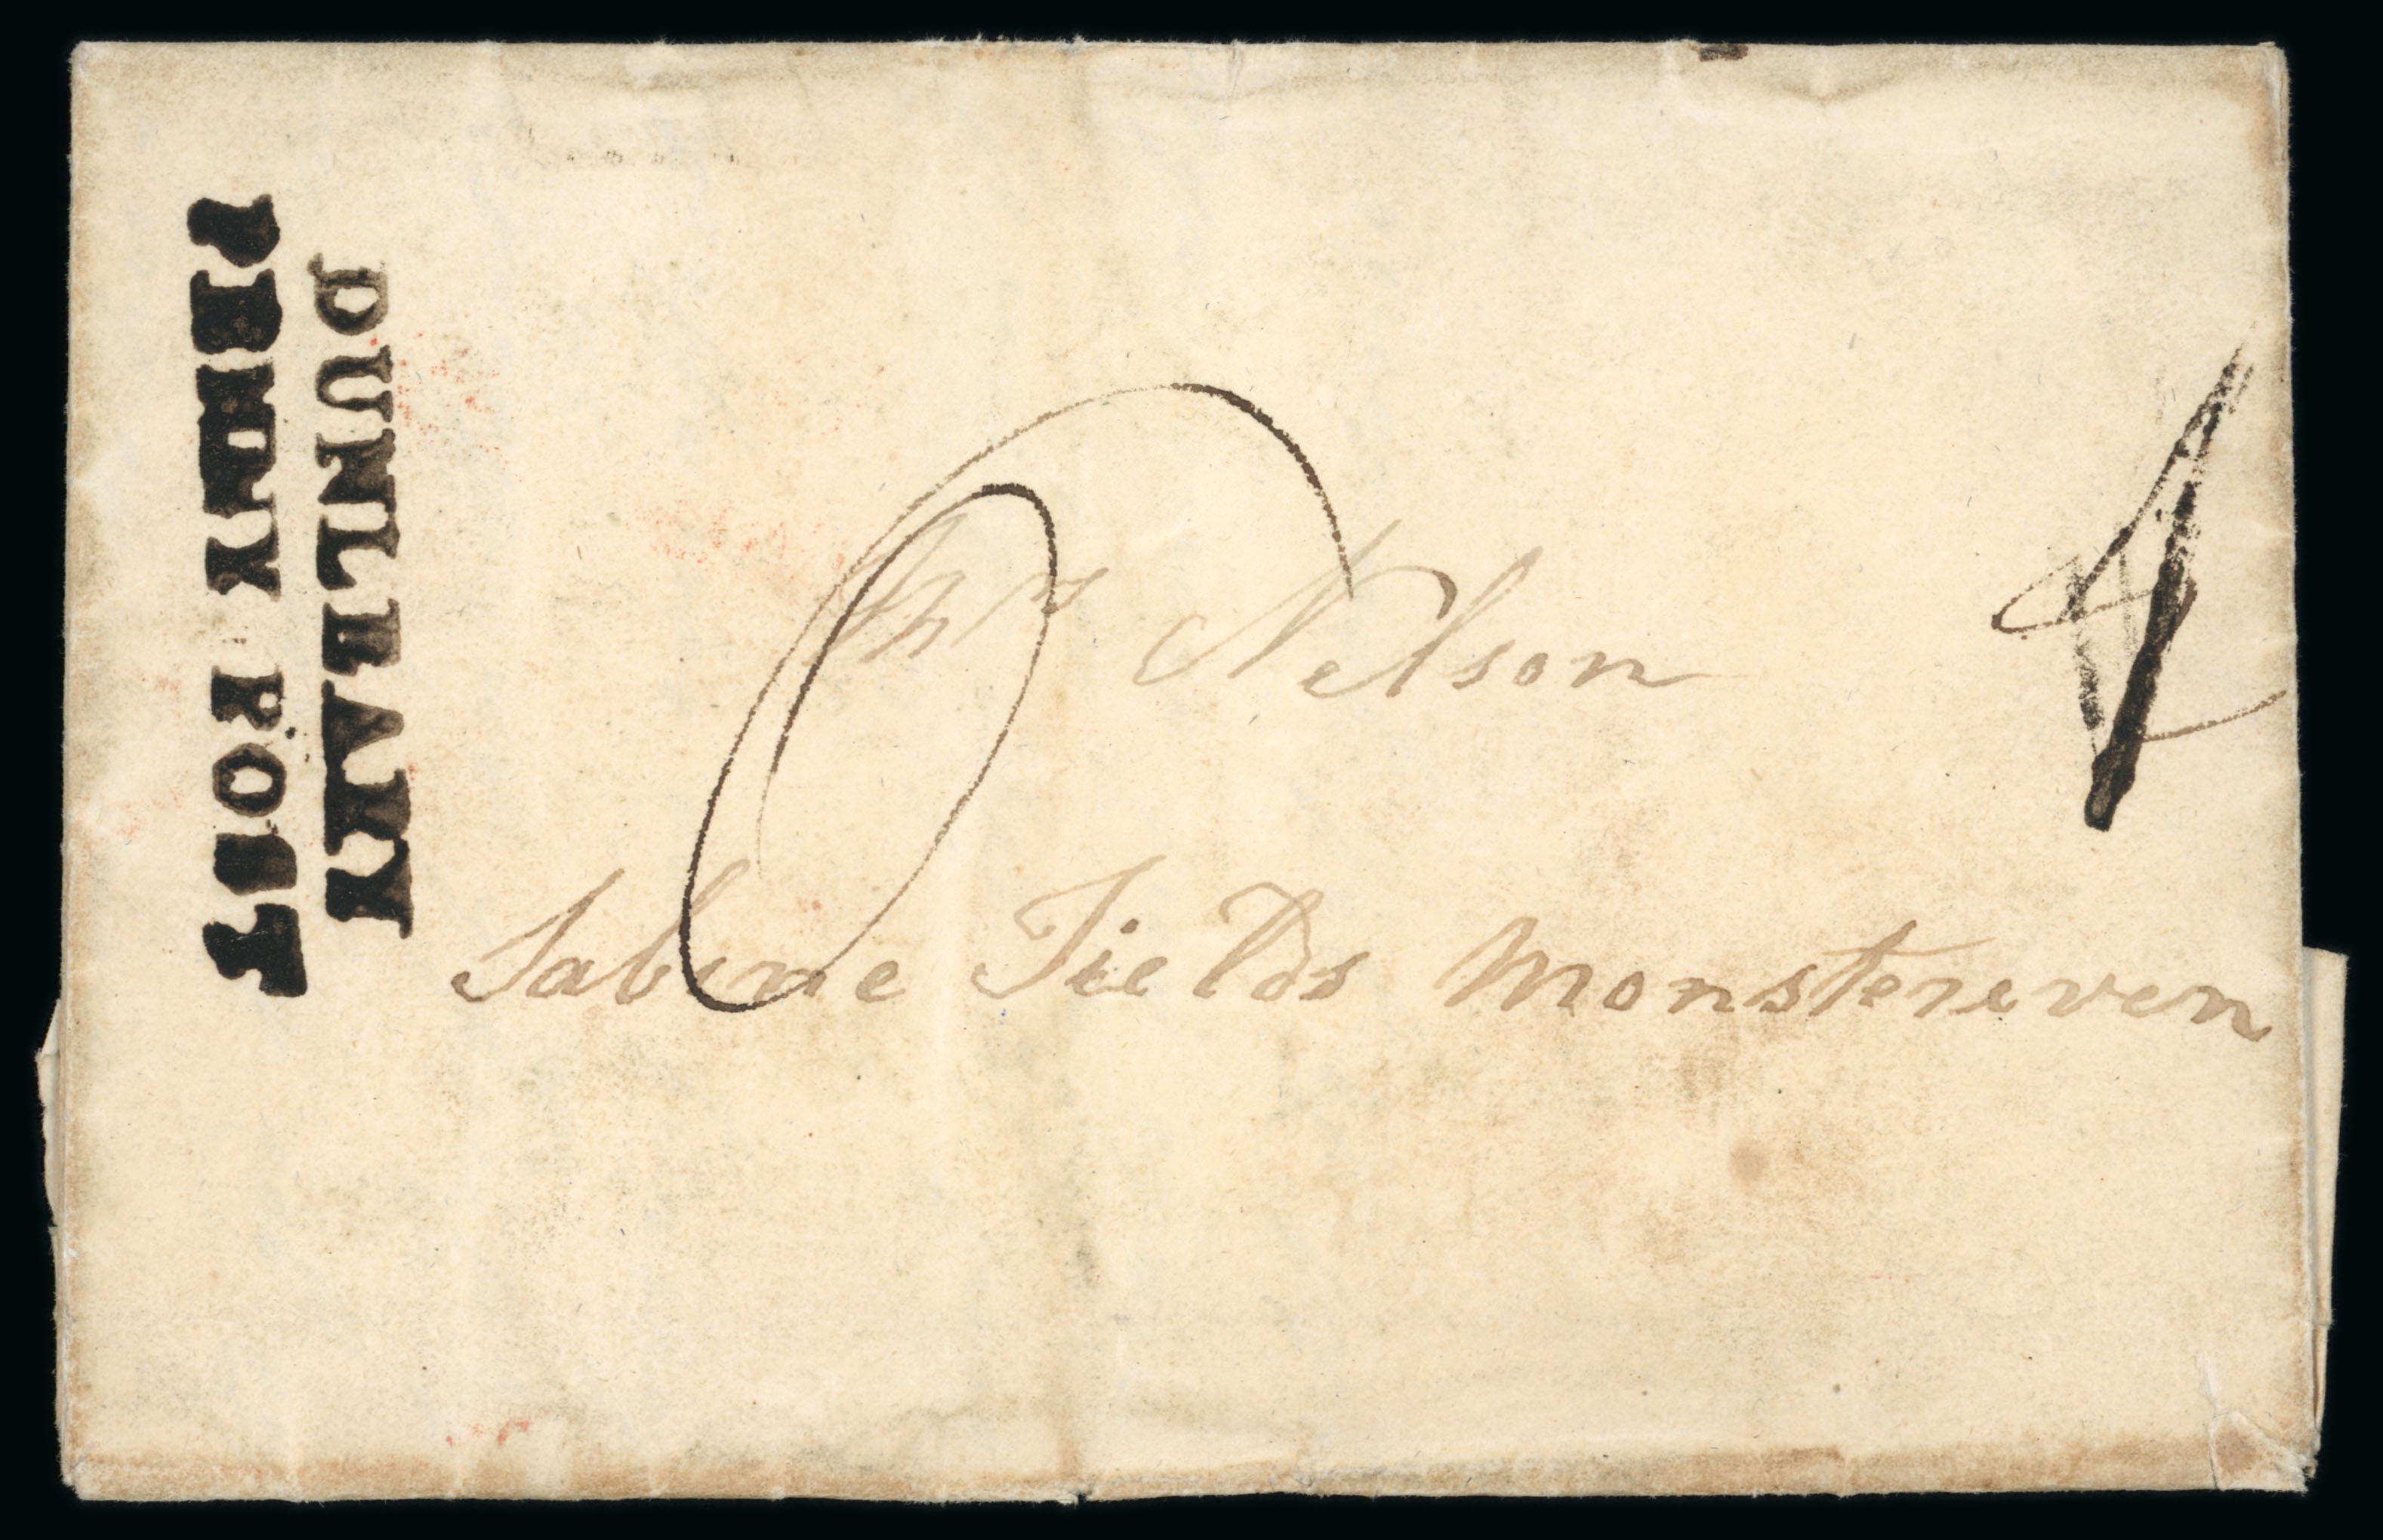 DUNLEARY
PENNY POST
Mrs Nelson
Sabine Fields Monstereven